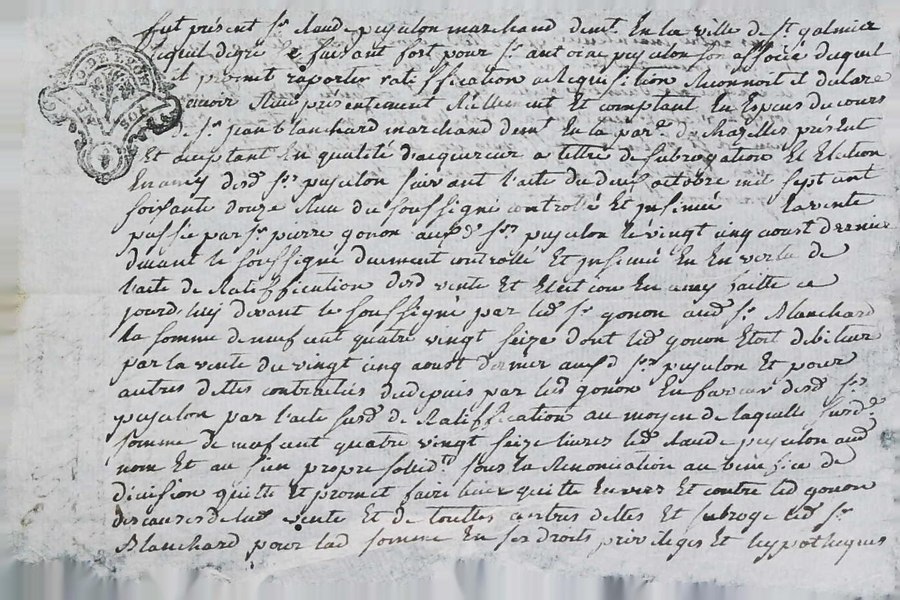 fut présent sr. claude pujalon marchand demt. En la ville de st. galmier
lequel degré et faisant fort pour sr. antoine pujalon son associé duquel
il promet raporter ratiffication a Requisition Reconnoit et declare
avoir Reçu présentement Réellement Et comptant En Especes du cours
de sr. jean Blanchard marchand demt. En la parse. de chazelles présent
Et acceptant En qualité d'acquereur a tittre de subrogation Et Election
En amÿ desd srs. pujalon suivant l'acte du deux octobre mil sept cent
soixante douze Reçu du soussigné controllé Et insinué la vente
passée par sr. pierre gonon auxds. srs. pujalon le vingt cinq aoust dernier
devant le soussigné duement controllé Et insinué En En vertu de
l'acte de Ratiffication desd vente Et Election En amÿ faitte ce
jourd'huy devant le soussigné par led sr. gonon aud sr. Blanchard
la somme de neuf cent quatre vingt seize dont led gonon Etoit débiteur
par la vente du vingt cinq aoust dernier auxd srs. pujalon Et pour
autres dettes contractées dudepuis par led gonon En faveur desd srs.
pujalon par l'acte susd de Ratiffication au moyen de laquelle susde.
somme de neuf cent quatre vingt seize livres led. claude pujalon aud.
nom Et au sien propre solidt. sous la Renonciation au benefice de
division quitte Et promet faire tenir quitte Envers Et contre led gonon
des causes de lad vente Et de touttes autres dettes Et subroge led sr.
Blanchard pour lad somme En ses droits privileges Et hypotheques